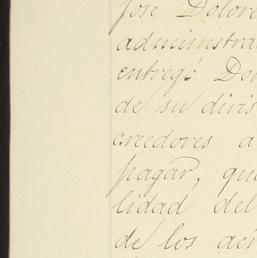 José Dolore
administra
entregó Don
de su divis
creedores a
pagar, que
lidad del
de los acr